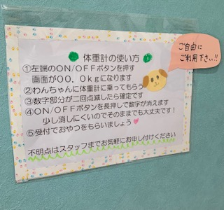 体重計の使い方
①左端のON/OFFボタンを押す
画面が00.0kgになります
②わんちゃんに体重計に乗ってもらう
③数字部分が二回点滅したら確定です
④ON/OFFボタンを長押しで数字が消えます
少し消しにくいのでそのままでも大丈夫です!
⑤受付でおやつをもらいましょう
不明点はスタッフまでお気軽にお申し付けください
ご自由に
ご利用下さい!!